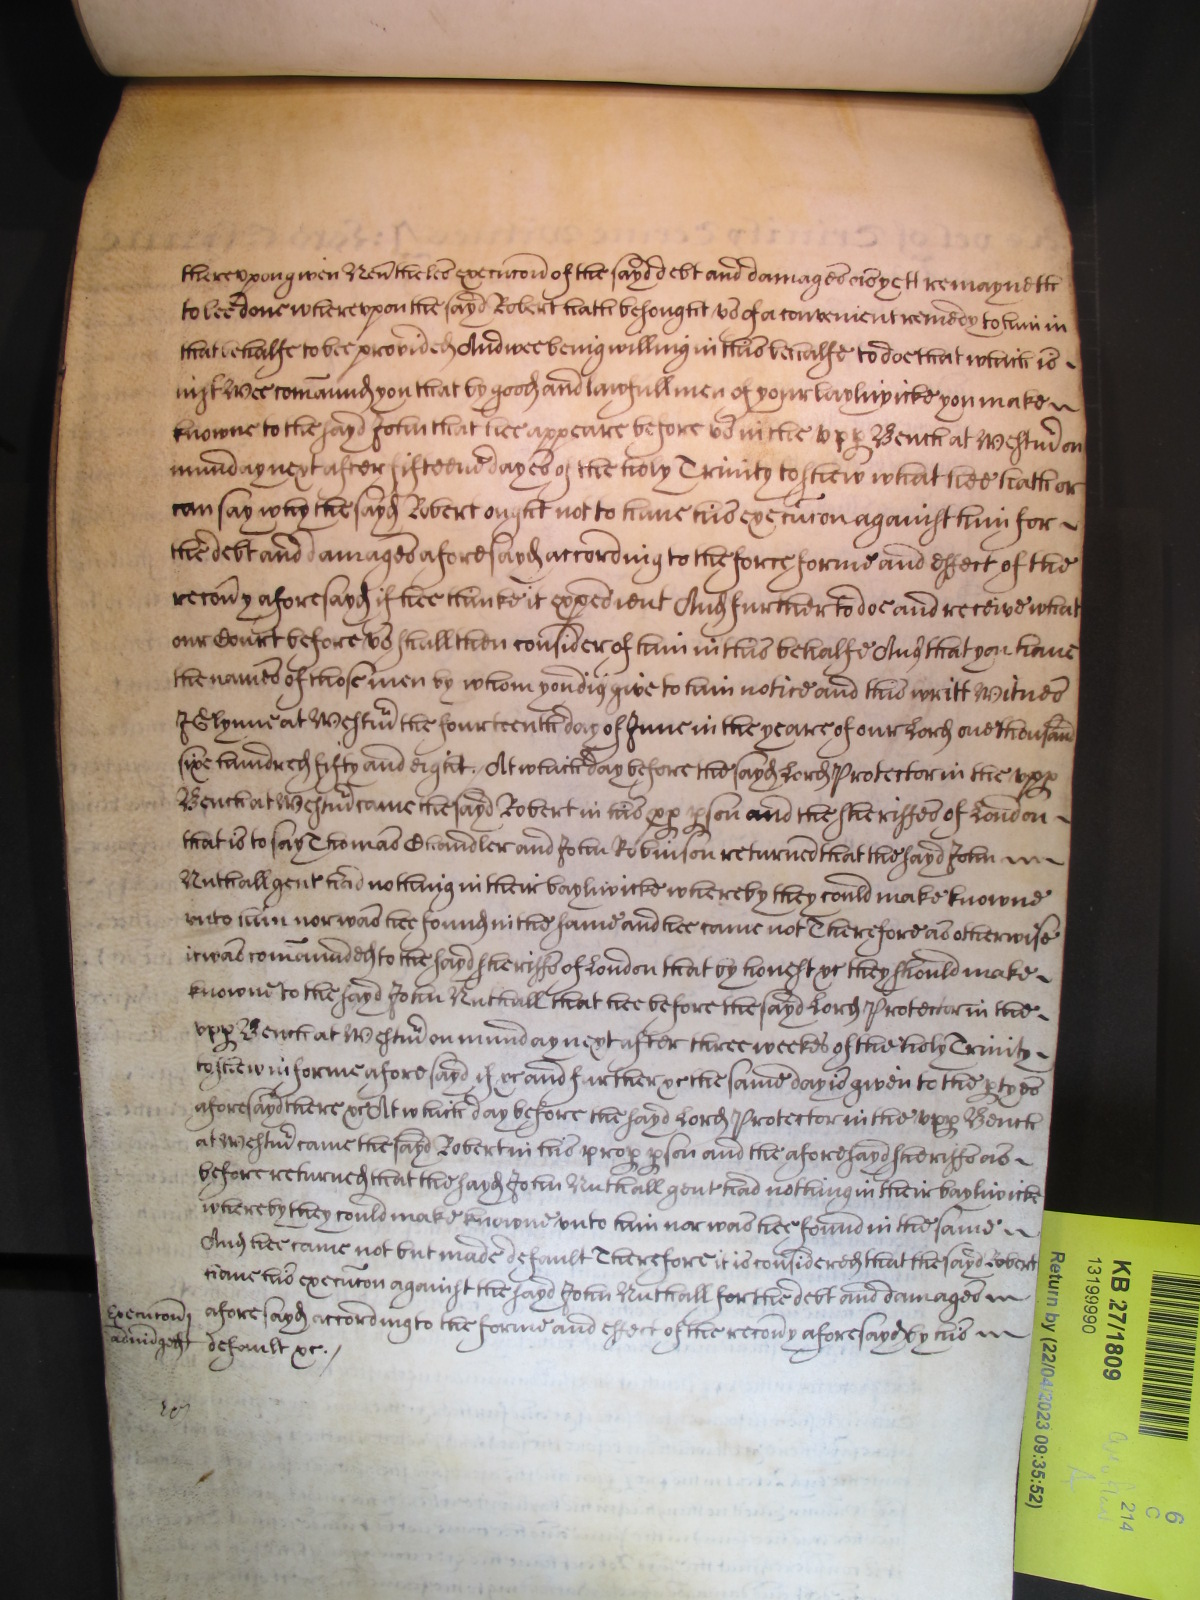 therevpon given Neu'theles execucon of the sayd debt and damages as yett remayneth
to bee done wherevpon the sayd Robert hath besought vs of a convenient remedy to him in
that behalfe to bee provided And wee being willing in this behalfe to doe that which is
iust Wee com̄aund you that by good and lawfull men of your baylywicke you make
knowne to the sayd John that hee appeare before vs in the vpp Bench at Westm̄ on
munday next after fifteene dayes of the holy Trinity to shew what hee hath or
can say why the sayd Robert ought not to have his execucon against him for
the debt and damages aforesayd according to the force forme and effect of the
recou'y aforesayd if hee thinke it expedient And further to doe and receive what
our Court before vs shall then consider of him in this behalfe And that you have
the names of those men by whom you did give to him notice and this writt Witnes
J Glynne at Westm̄ the fourteenth day of June in the yeare of our Lord one thousand
sixe hundred fifty and eight. At which day before the sayd Lord Protector in the vpp
Bench at Westm̄ came the sayd Robert in his pp pson and the sheriffes of London
that is to say Thomas Chandler and John Robinson returned that the sayd John
Nuthall gent had nothing in their baylywicke whereby they could make knowne
vnto him nor was hee found in the same and hee came not Therefore as otherwise
it was com̄aunded to the sayd sheriffs of London that by honest &c they should make
knowne to the sayd John Nuthall that hee before the sayd Lord Protector in the
vpp Bench at Westm̄ on munday next after three weekes of the holy Trinity
to shew in forme aforesayd if &c and further &c the same day is given to the ptyes
aforesayd there &c At which day before the sayd Lord Protector in the vpp Bench
at Westm̄ came the sayd Robert in his prop pson and the aforesayd sheriffs as
before returned that the sayd John Nuthall gent had nothing in their baylywicke
whereby they could make knowne vnto him nor was hee found in the same
And hee came not but made default Therefore it is considered that the sayd Robert
have his execucon against the sayd John Nuthall for the debt and damages
Execucon aforesayd according to the forme and effect of the recou'y aforesayd by his
adiudged default &c.
KB 27/1809
13199990
Return by (22/04/2023 09:35:52)
6
C
214